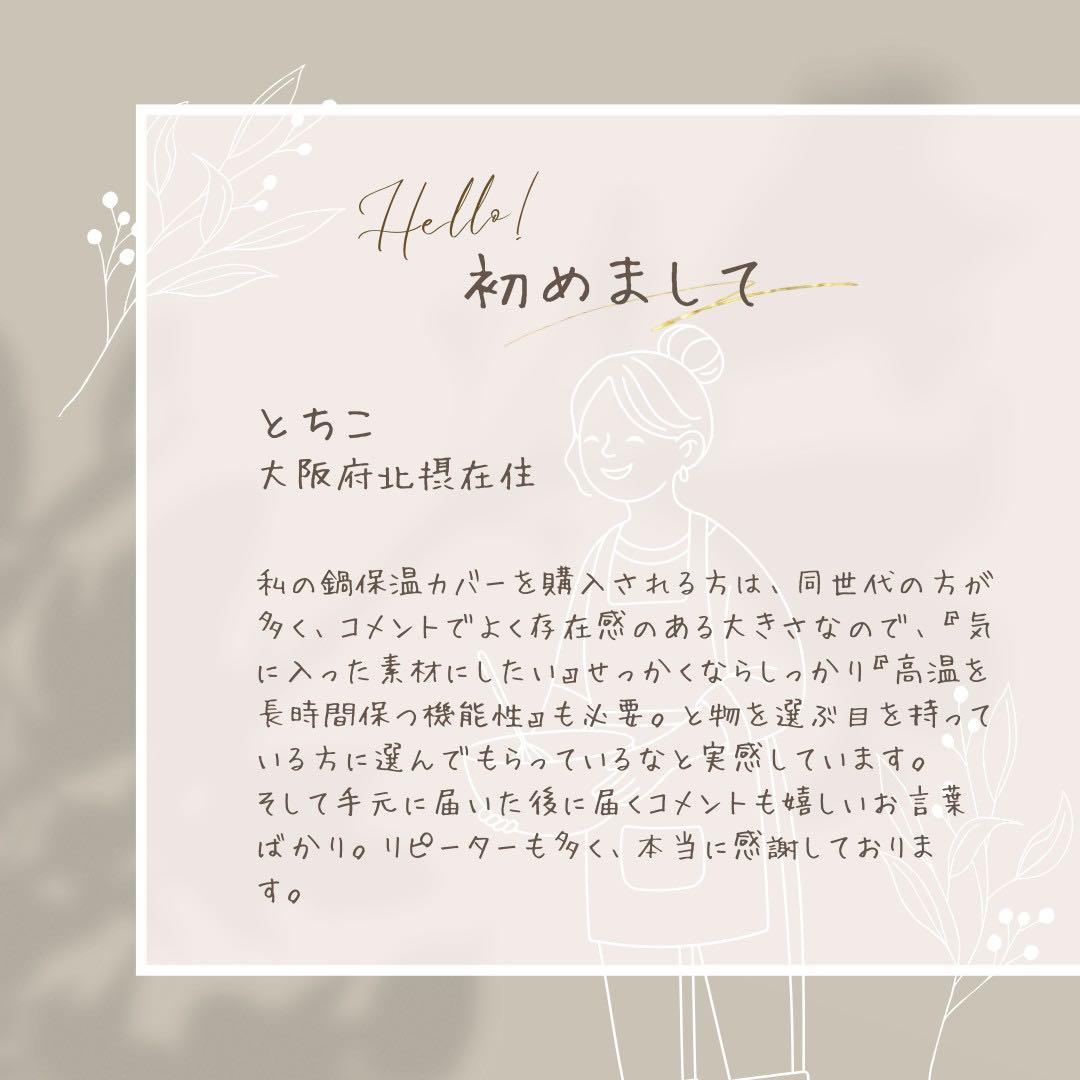 Hello!
初めまして
とちこ
大阪府北摂在住
私の鍋保温カバーを購入される方は、同世代の方が
多く、コメントでよく存在感のある大きさなので、『気
に入った素材にしたい』せっかくならしっかり『高温を
長時間保つ機能性』も必要。と物を選ぶ目を持って
いる方に選んでもらっているなと実感しています。
そして手元に届いた後に届くコメントも嬉しいお言葉
ばかり。リピーターも多く、本当に感謝しておりま
す。